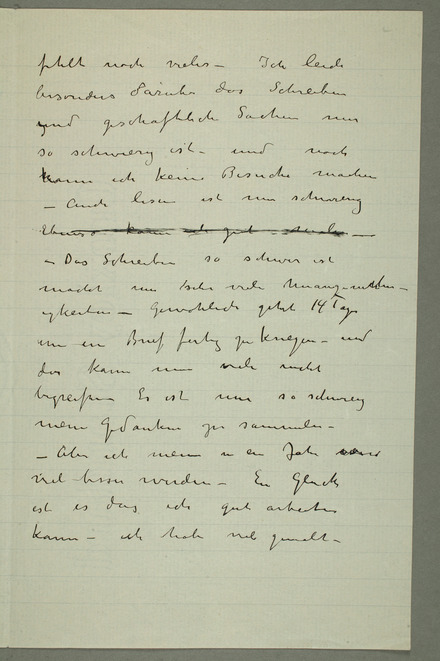 fehlt noch vieles – Ich leide
besonders darunter das Schreiben
und geschäftliche Sachen mir
so schwierig ist – und noch
kann ich keine Besuche machen
– Auch lesen ist mir schwierig
Ebenso kann ich gut
– Das Schreiben so schwer ist
macht mir sehr viele Unangenehm–
igkeiten – Gewöhnlich geht 14 Tage
um ein Brief fertig zu kriegen – und
das kann man nicht
begreifen Es ist mir so schwierig
meine Gedanken zu sammeln –
– Aber ich meine in ein Jahr
viel besser werden – Ein Glück
ist es das ich gut arbeiten
kann – ich habe viel gemalt –